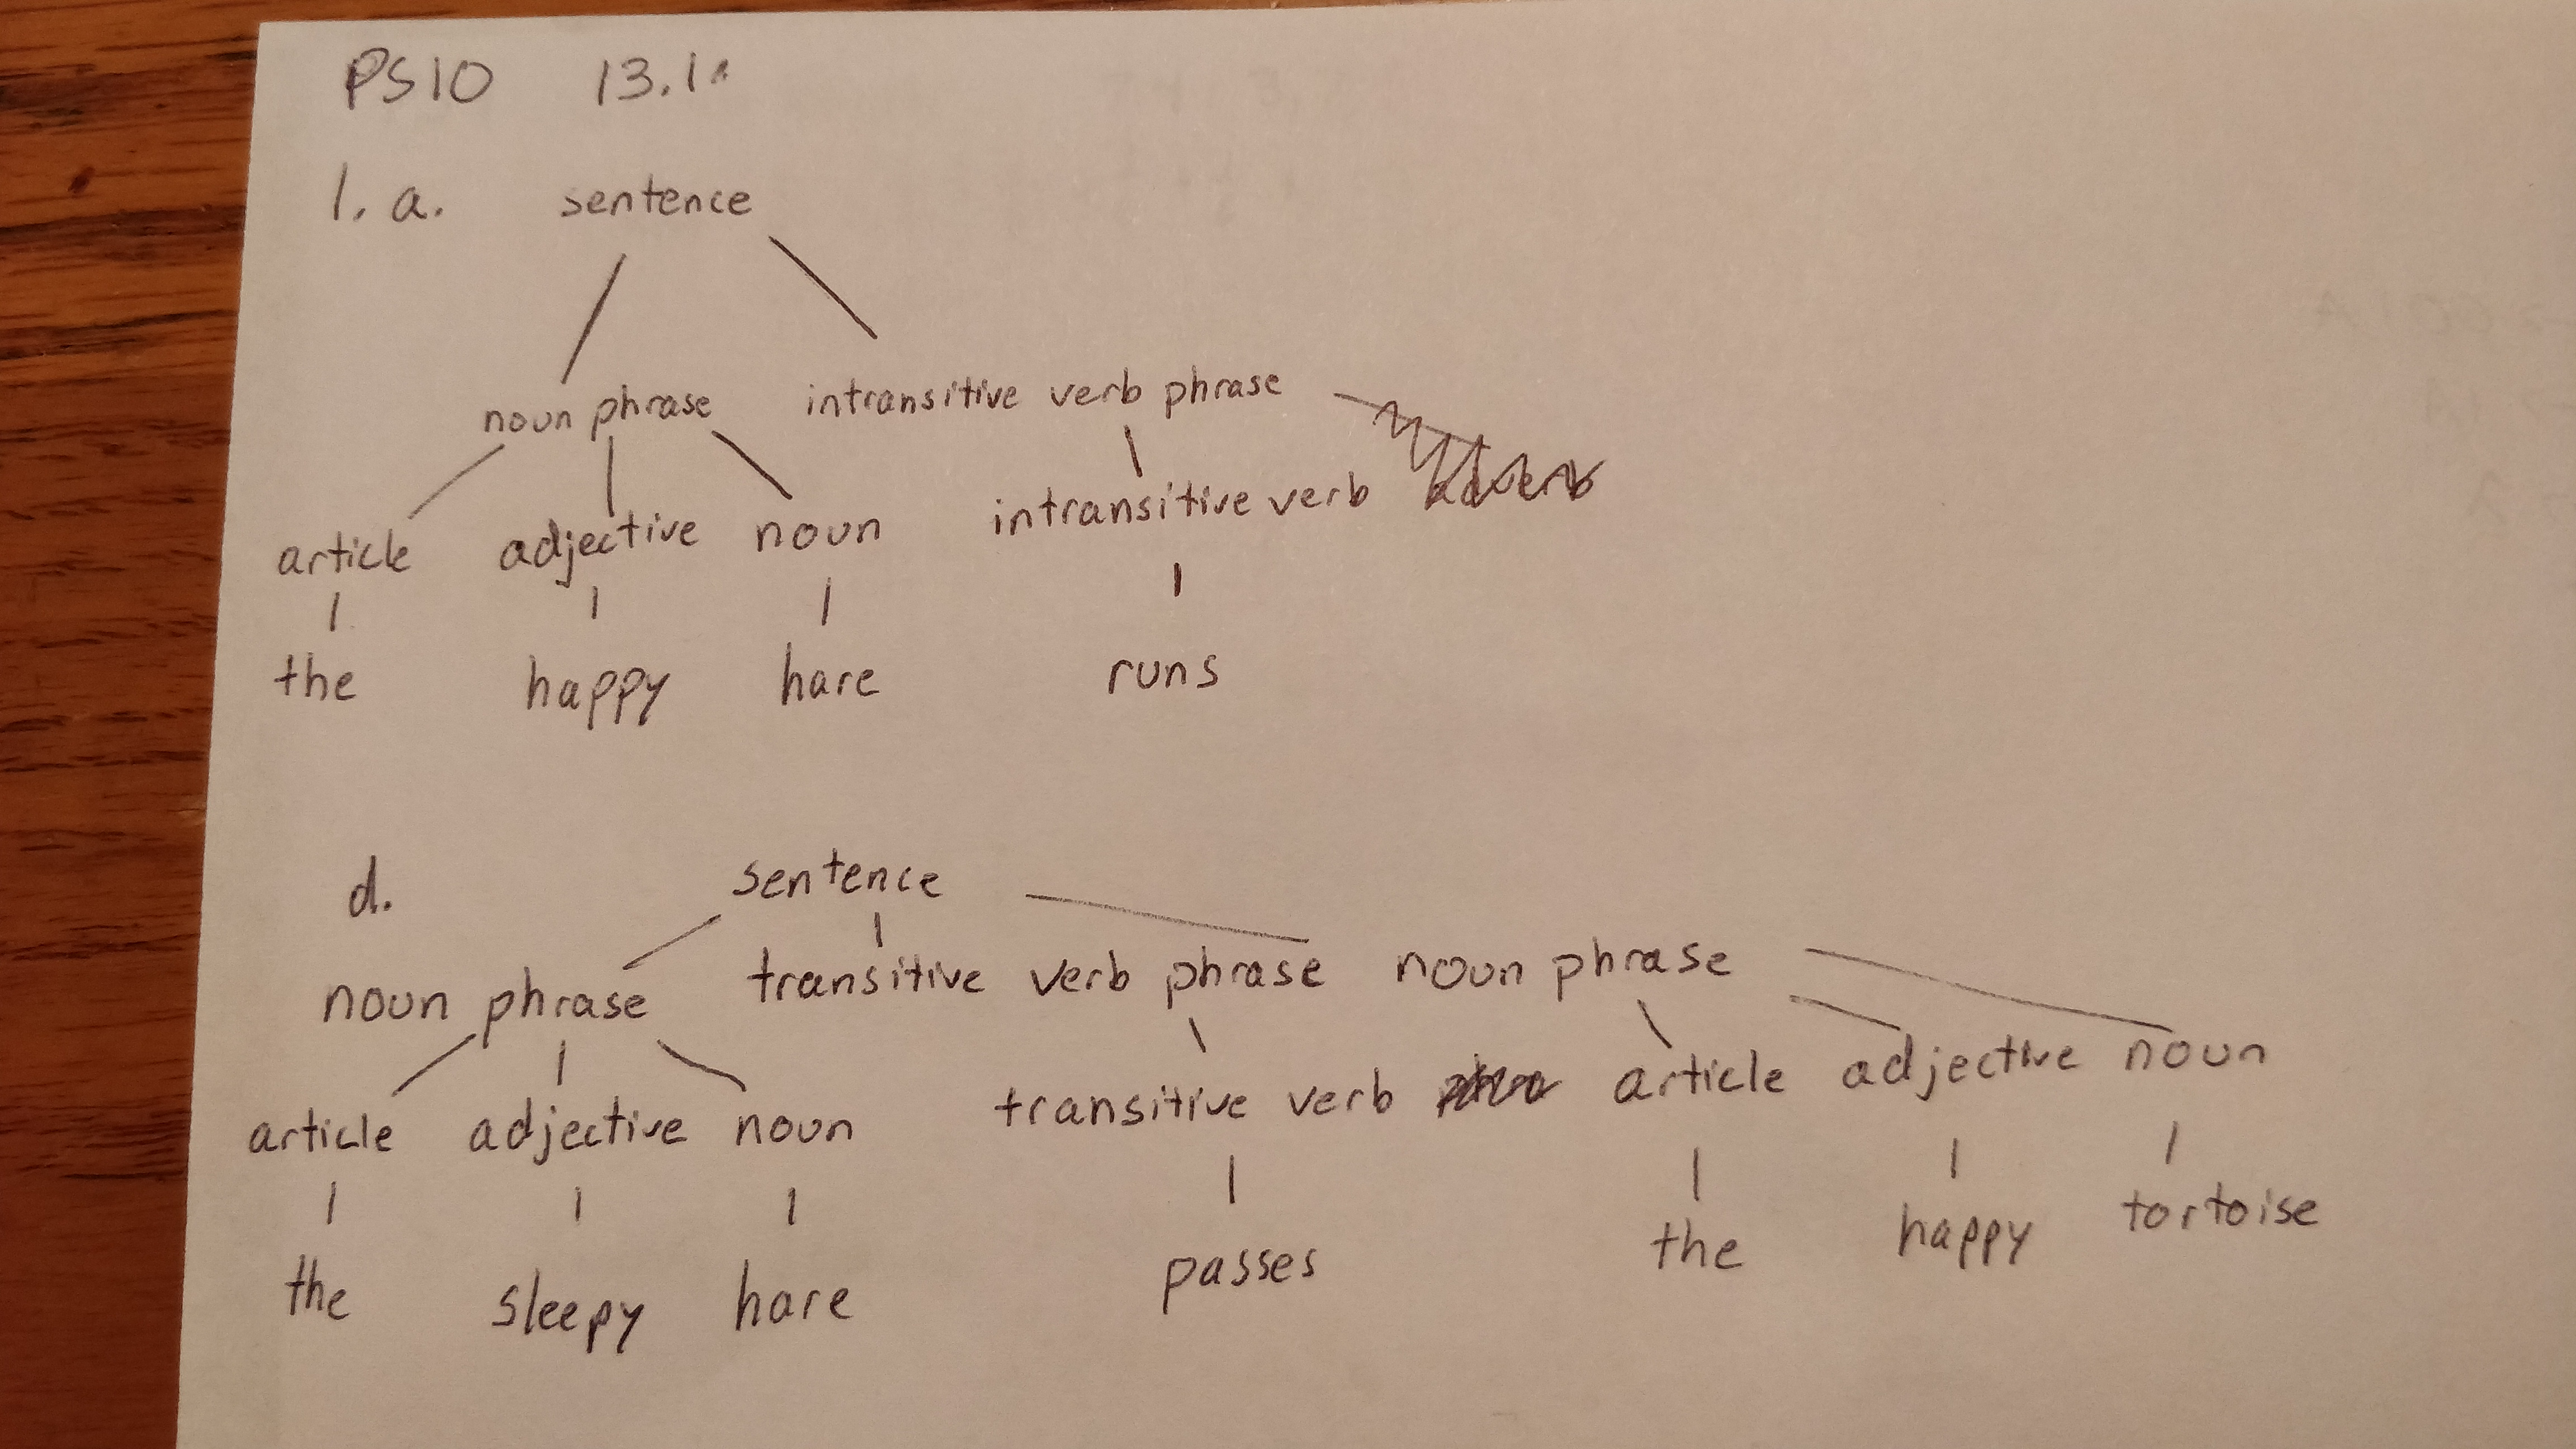 PS10 13.1
1. a. sentence
noun phrase intransitive verb phrase
article adjective noun intransitive verb
the happy hare runs
d. sentence
noun phrase transitive verb phrase noun phrase
article adjective noun transitive verb article adjective noun
the sleepy hare passes the happy tortoise